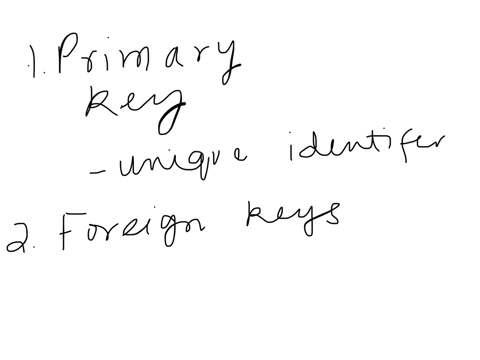 1. Primary
key
- unique identifer
2. Foreign keys